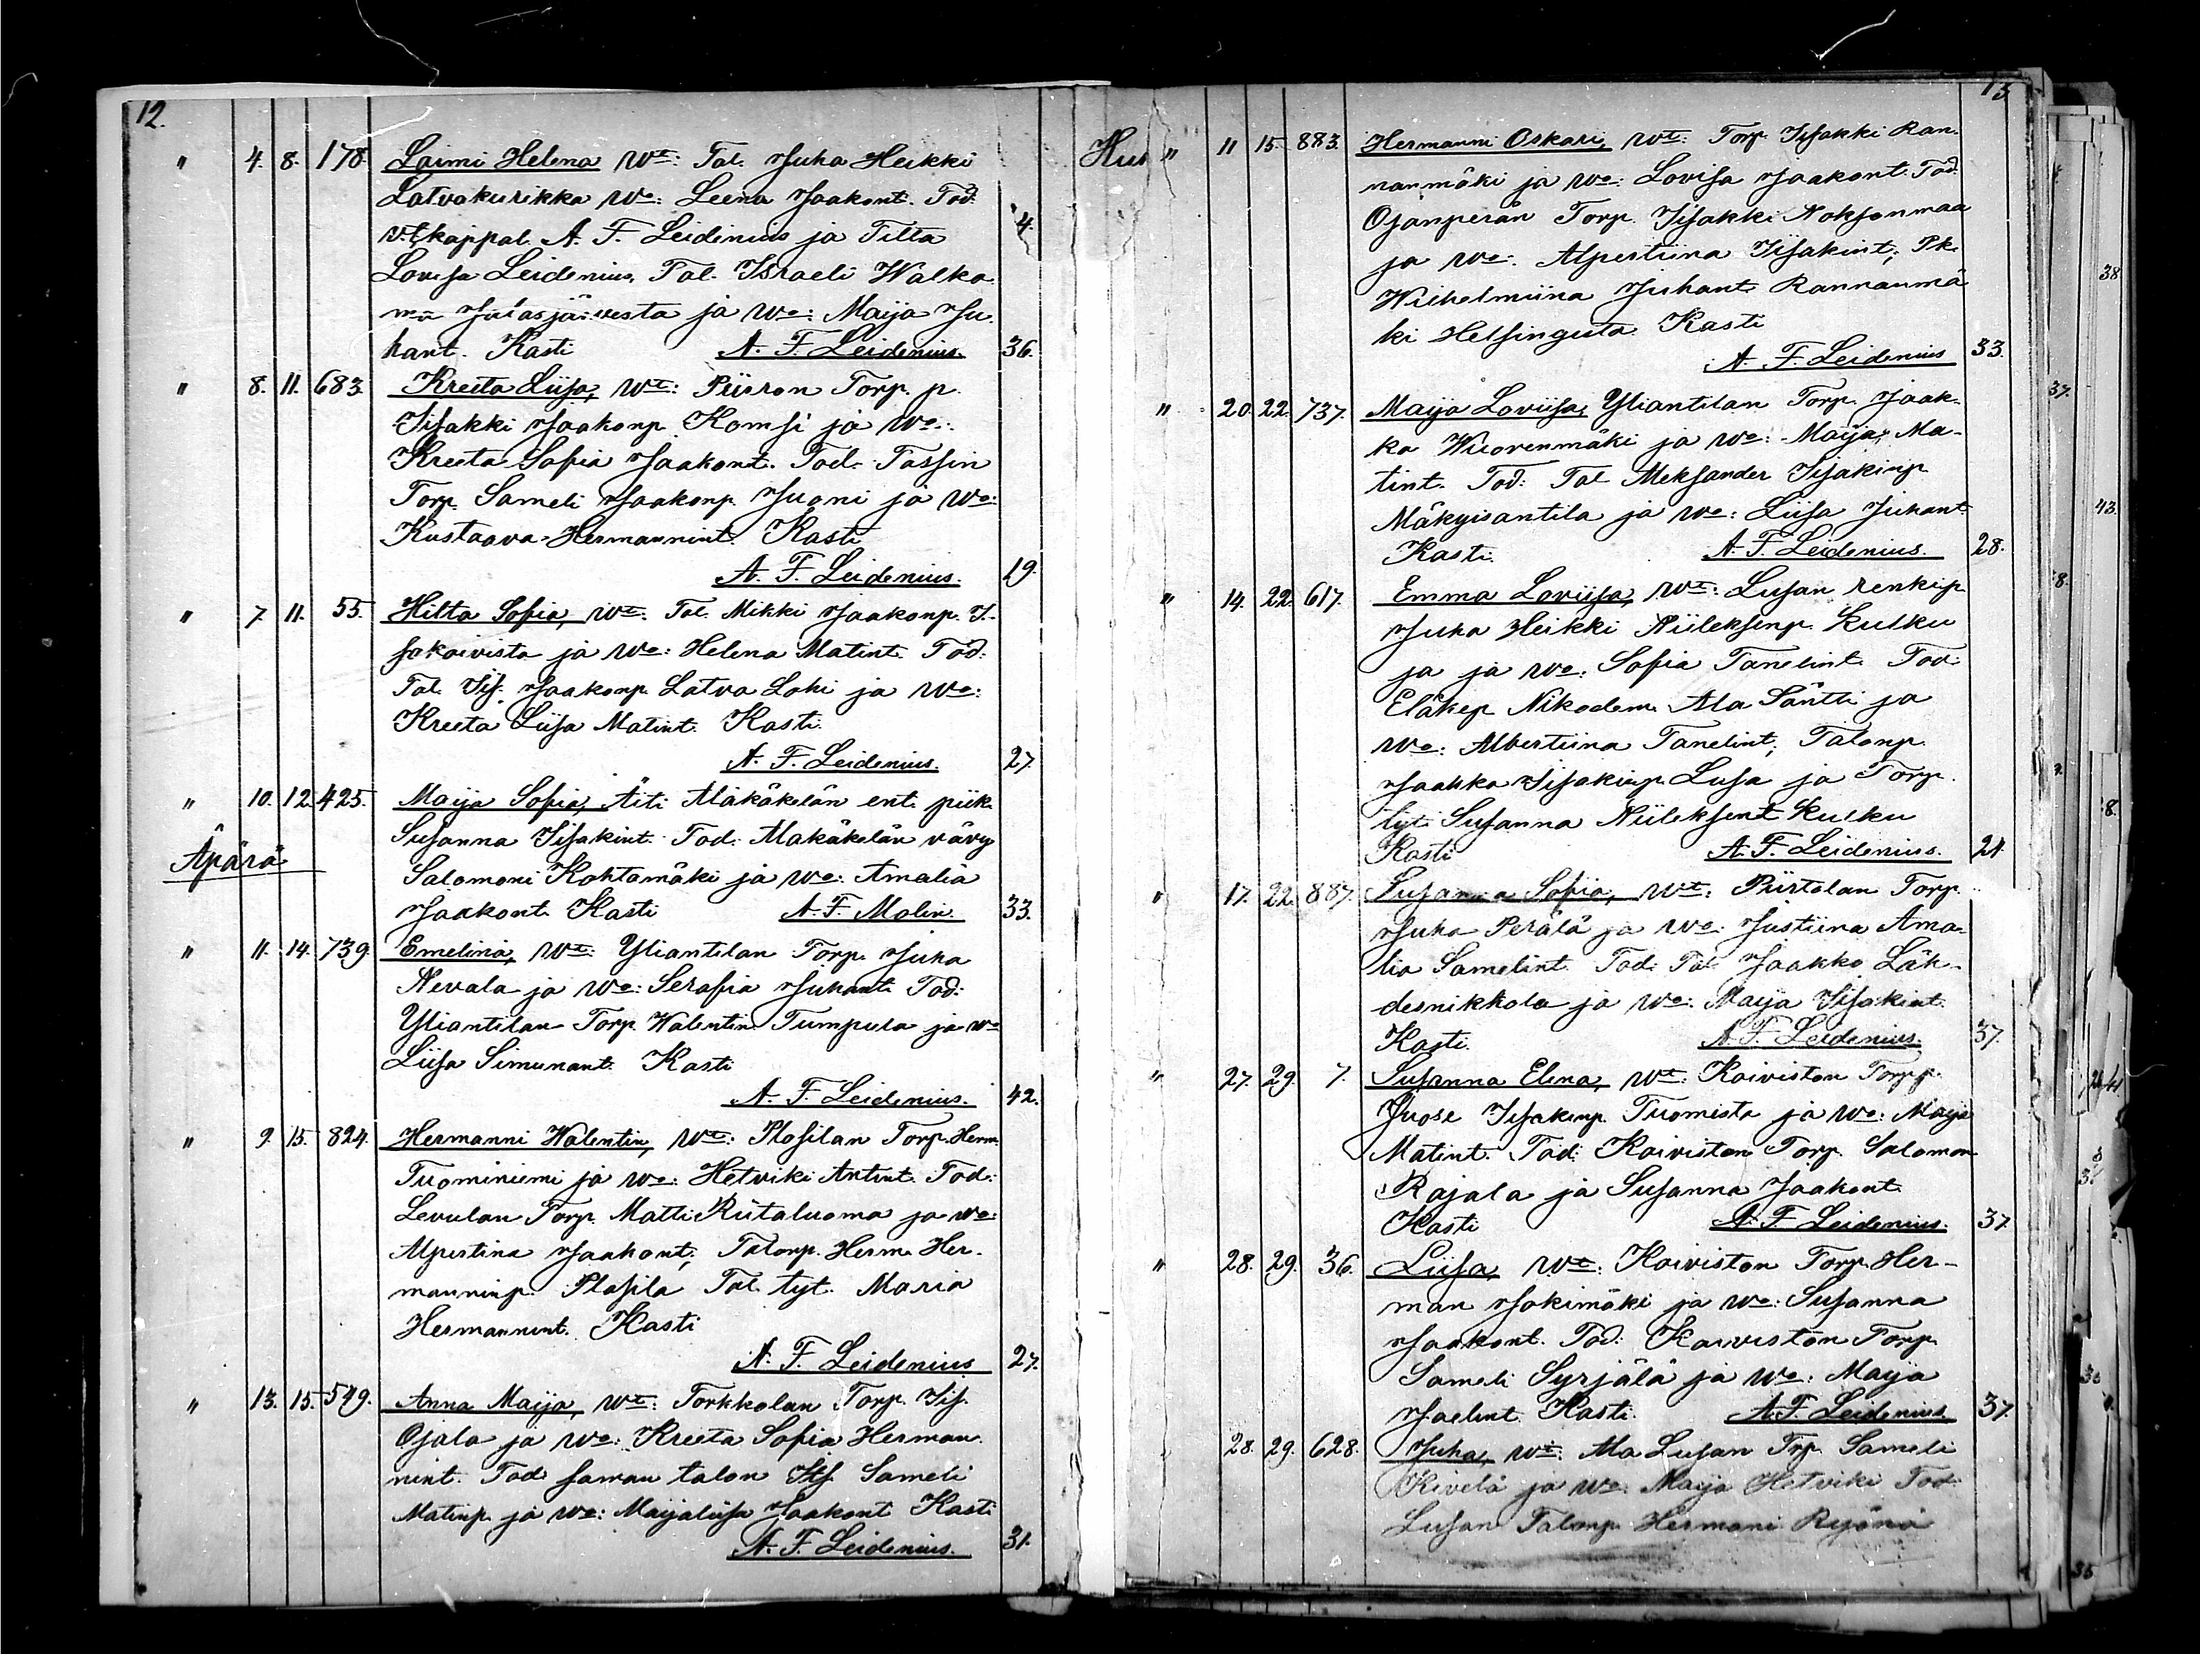 12.
" 4. 8. 178. Laimi Helena Wt: Tal. Juha Heikki
Latvakurikka Wo: Leena Jaakont. Tod.
v.t. kappal. A. F. Leidenius ja Tilta 4.
Lovisa Leidenius, Tal. Israeli Walka
ma Jalasjärvesta ja Wo: Maija Ju
hant. Kasti A. F. Leidenius. 36.
" 8. 11. 683. Kreeta Liisa, Wt: Piirron Torp. p.
Iisakki Jaakonp. Komsi ja Wo:
Kreeta Sofia Jaakont. Tod. Tassin
Torp. Sameli Jaakonp. Juoni ja Wo:
Kustaava Hermannint. Kasti
A. F. Leidenius. 29.
" 7. 11. 55. Hilta Sofia, Wt: Tal. Mikki Jaakonp. I.
sokoivisto ja Wo: Helena Matint. Tod:
Tal. Iis. Jaakonp. Latva Lohi ja Wo:
Kreeta Liisa Matint. Kasti.
A. F. Leidenius. 27.
" 10. 12. 425. Maija Sofia, Äiti Alakäkelän ent. piik.
Susanna Iisakint. Tod. Alakäkelän vävy
Äpärä
Salomoni Kohtamäki ja Wo: Amalia
Jaakont. Kasti A. F. Molin. 33.
" 11. 14. 739. Emelina, Wt: Yliantilan Torp. Juha
Nevala ja Wo: Serafia Juhant. Tod:
Yliantilan Torp. Walentin Tumpula ja Wo
Liisa Simunant. Kasti
A. F. Leidenius. 42.
" 9. 15. 824. Hermanni Walentin, Wt: Plosilan Torp. Herm.
Tuominiemi ja Wo: Hetviki Antint. Tod:
Levulan Torp. Matti Riitaluoma ja Wo:
Alpertina Jaakont; Talonp. Herm. Her-
manninp. Plosila Tal. tyt. Maria
Hermannint. Kasti
A. F. Leidenius 27.
" 13. 15. 549. Anna Maija, Wt: Torkkolan Torp. Iis.
Ojala ja Wo: Kreeta Sofia Herman
nint. Tod: saman talon Its. Sameli
Matinp. ja Wo: Maijaliisa Jaakont Kasti
A. F. Leidenius. 31.
13
Hu " 11 15. 883. Hermanni Oskari, Wt: Torp. Iisakki Ran-
nanmäki ja Wo: Lovisa Jaakont. Tod.
Ojanperän Torp. Iisakki Noksonmaa
ja Wo: Alpertiina Iisakint; Pk.
Wilhelmiina Juhant. Rannanmä
ki Helsingista. Kasti
A. F. Leidenius 33.
" 20. 22. 737. Maija Loviisa, Yliantilan Torp. Jaak-
ko Wuorenmäki ja Wo: Maija Ma-
tint. Tod: Tal. Aleksander Iisakinp.
Mäkyisantila ja Wo: Liisa Juhant.
Kasti. A. F. Leidenius. 28.
" 14. 22. 617. Emma Loviisa, Wt: Lusan renkip.
Juha Heikki Niileksenp. Kulku
ja ja Wo: Sofia Tanelint. Tod:
Eläkep. Nikodem. Ala Säntti ja
Wo: Albertiina Tanelint; Talonp.
Jaakko Iisakinp. Lusa ja Torp.
tyt. Susanna Niileksent. Kulku
Kasti A. F. Leidenius. 24.
" 17. 22. 887. Susanna Sofia, Wt: Piirtolan Torp.
Juha Perälä ja Wo: Justiina Ama-
lia Samelint. Tod: Tal. Jaakko Läh-
desnikkola ja Wo: Maija Iisakint.
Kasti. A. F. Leidenius. 37.
" 27. 29. 7. Susanna Elena, Wt: Koiviston Torp.
Juose Iisakinp. Tuomisto ja Wo: Maija
Matint. Tod: Koiviston Torp. Salomon
Rajala ja Susanna Jaakont.
Kasti A. F. Leidenius. 37.
" 28. 29. 36. Liisa, Wt: Koiviston Torp. Her-
man Jokimäki ja Wo: Susanna
Jaakont. Tod: Koiviston Torp.
Sameli Syrjälä ja Wo: Maija
Joelint. Kasti. A. F. Leidenius 37.
28. 29. 628. Juha, Wt: Ala Lusan Trp. Sameli
Kivelä ja Wo: Maija Hetviki Tod:
Lusan Talonp. Hermani Ryönä